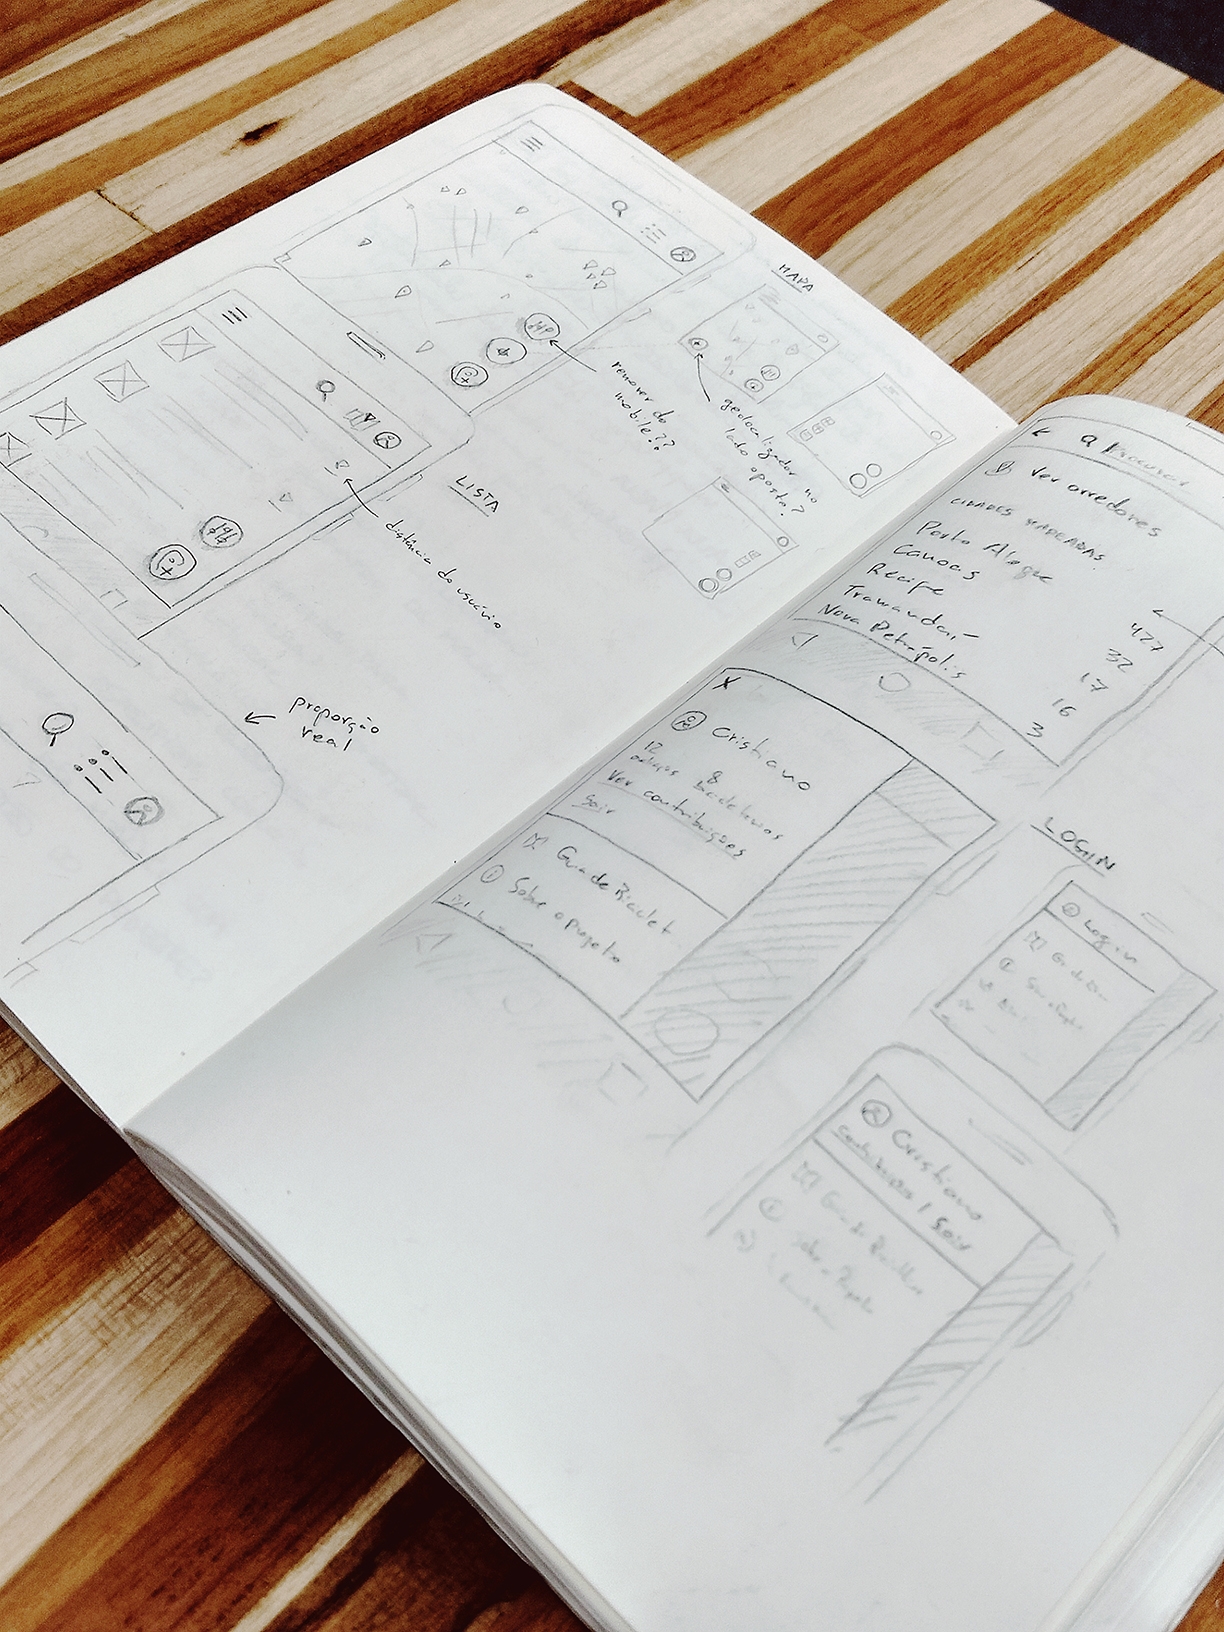 MAPA
remover do
mobile??
geolocalizador no
lado oposto?
LISTA
distância do usuário
proporção
real
Procurar
Ver arredores
CIDADES MAPEADAS
Porto Alegre 427
Canoas 32
Recife 17
Tramandaí 16
Nova Petrópolis 3
X
Cristiano
12 8
bicicletários
Ver contribuições
Sair
Guia de Biciclet
Sobre o projeto
LOGIN
Login
Cristiano
Contribuições / Sair